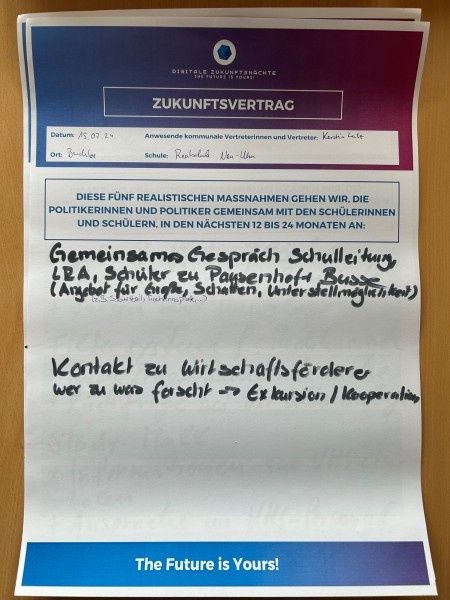 DIGITALE ZUKUNFTSNÄCHTE
THE FUTURE IS YOURS!
ZUKUNFTSVERTRAG
Datum: 15.07.24 Anwesende kommunale Vertreterinnen und Vertreter: Kerstin Lutz
Ort: Schule: Realschule Neu-Ulm
DIESE FÜNF REALISTISCHEN MASSNAHMEN GEHEN WIR, DIE
POLITIKERINNEN UND POLITIKER GEMEINSAM MIT DEN SCHÜLERINNEN
UND SCHÜLERN, IN DEN NÄCHSTEN 12 BIS 24 MONATEN AN:
Gemeinsames Gespräch Schulleitung,
LRA, Schüler zu Pausenhof + Busse
(Angebot für Große, Schatten, Unterstellmöglichkeit)
(z.B.
Kontakt zu Wirtschaftsförderer
wer zu was forscht → Exkursion / Kooperation
The Future is Yours!